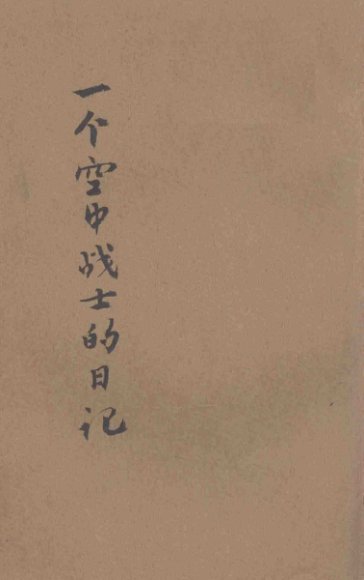 一个空中战士的日记